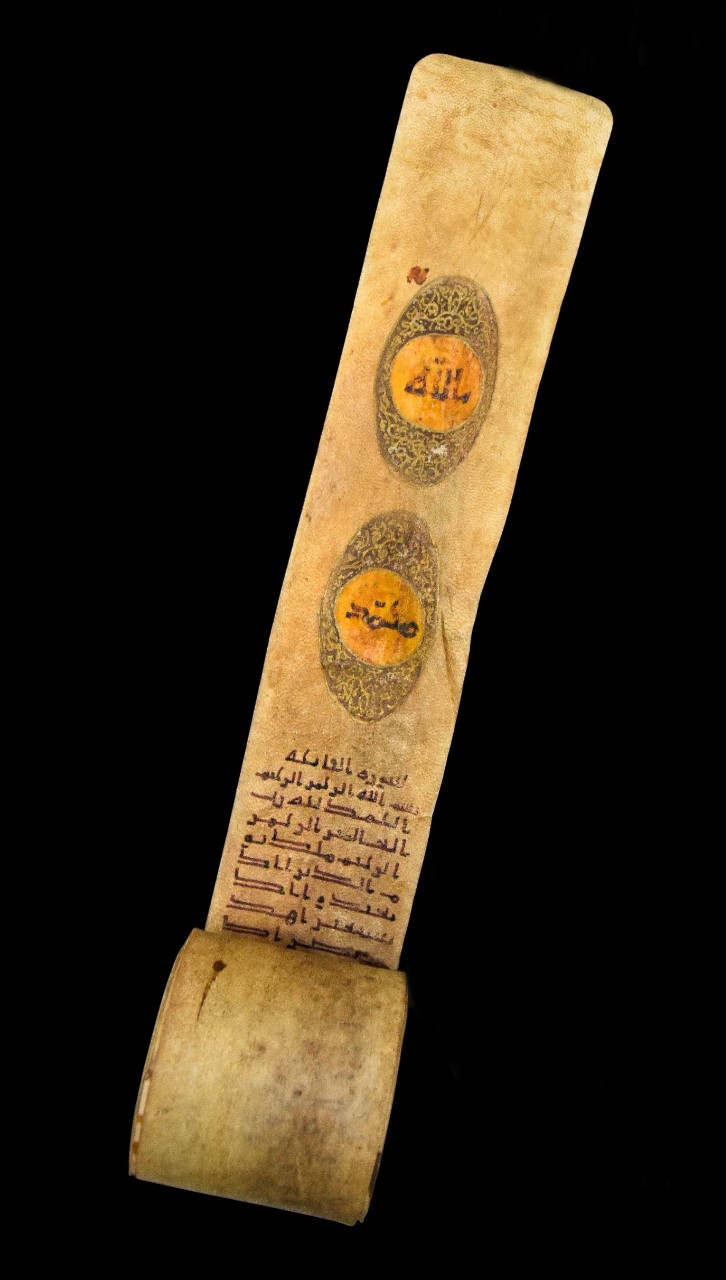 الله
محمد
سوره الفاتحه
بسم الله الرحمن الرحيم
الحمد لله رب
العالمين الرحمن
الرحيم ملك يو
م الدين اياك
نعبد و اياك
نستعين اهد